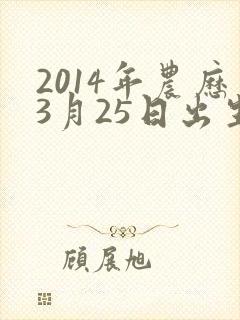 2014年農歷
3月25日出生
顧展旭